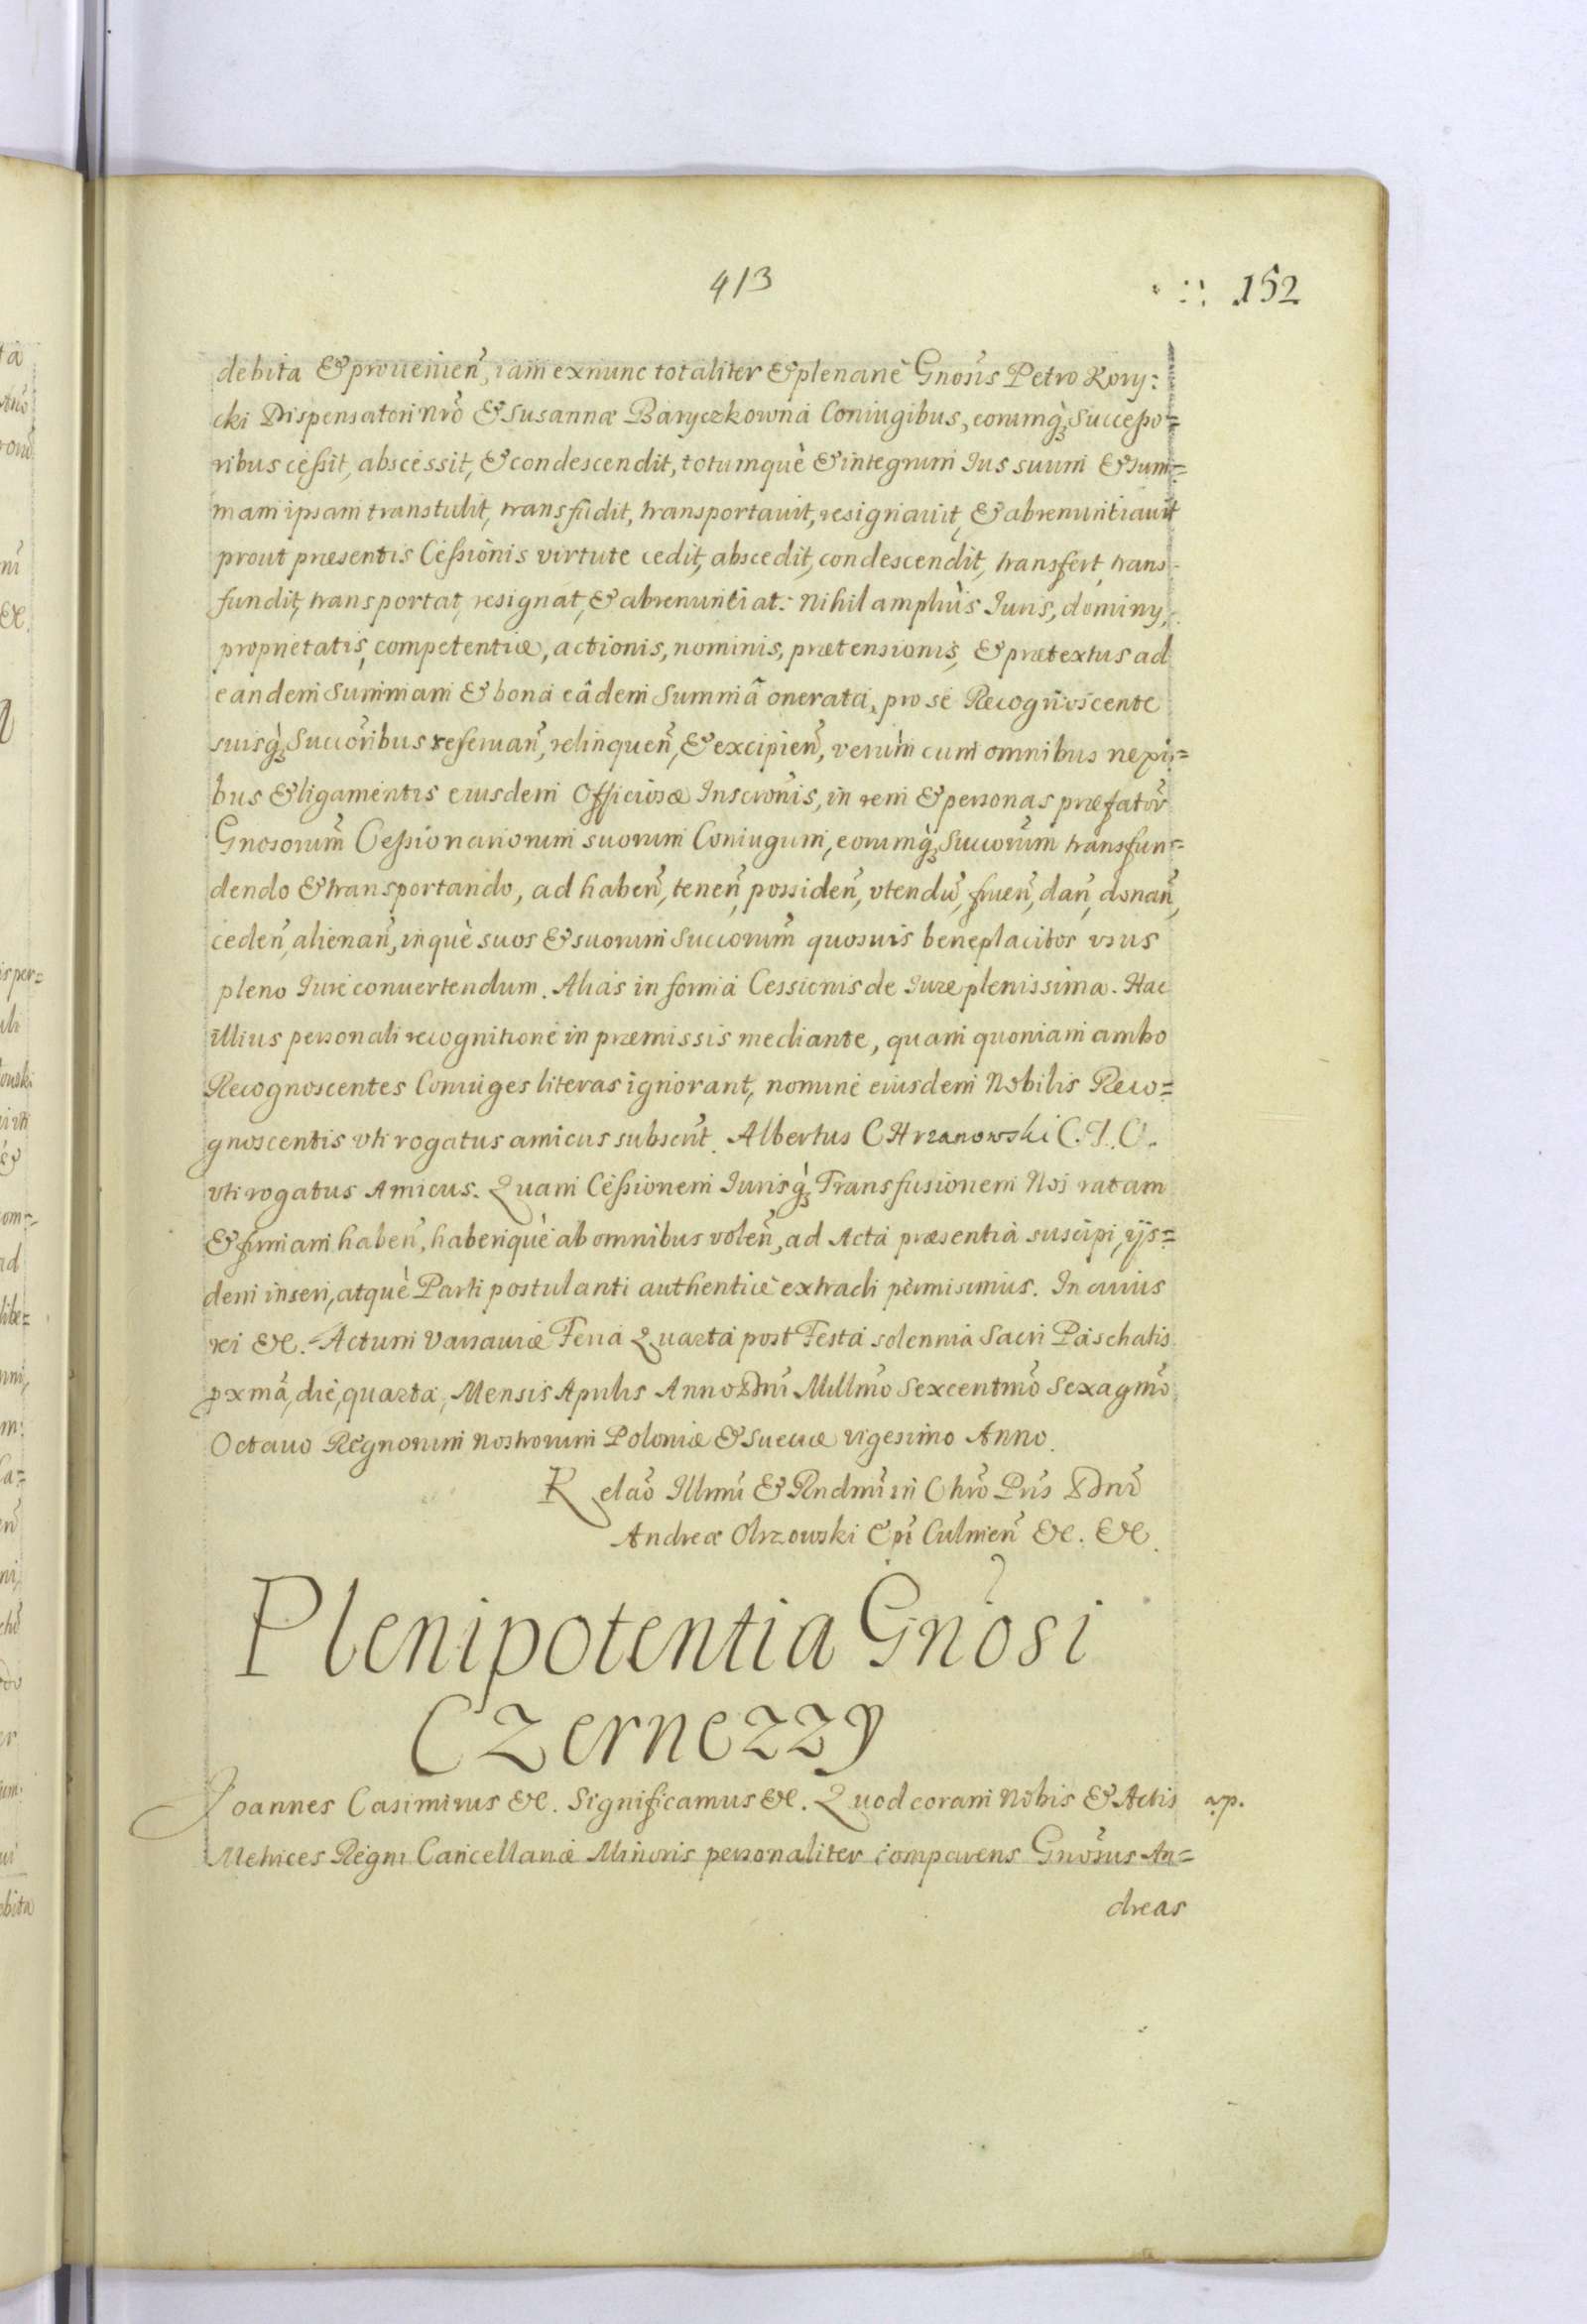 413
152
debita & prouenien̄, iam exnunc totaliter & plenariè Gnosis Petro Kory:
cki Dispensatori nrō & Susannæ Baryczkowna Coniugibus, eorumq; Succeßo=
ribus ceßit, abscessit, & condescendit, totumquè & integrum Ius suum & sum=
mam ipsam transtulit, transfudit, transportauit, resignauit, & abrenuntiauit
prout præsentis Ceßionis virtute cedit, abscedit, condescendit, transfert, trans-
fundit, transportat, resignat, & abrenuntiat: Nihil ampliùs Iuris, dominy,
proprietatis, competentiæ, actionis, nominis, prætensionis, & prætextus ad
eandem summam & bona eâdem summâ onerata, pro se Recognoscente
suisq; Succoribus reseruan̄, relinquen̄, & excipien̄, verùm cum omnibus nexi=
bus & ligamentis eiusdem Officiosæ Inscronis, in rem & personas præfator
Gnosorum Ceßionariorum suorum Coniugum, eorumq; Succorum transfun=
dendo & transportando, ad haben̄, tenen̄, possiden̄, vtendū, fruen̄, dan̄, donan̄,
ceden̄, alienan̄, inquè suos & suorum Succorum quosuis beneplacitos vsus
pleno Iure conuertendum. Alias in forma Cessionis de Iure plenissima. Hac
illius personali recognitione in præmissis mediante, quam quoniam ambo
Recognoscentes Coniuges literas ignorant, nomine eiusdem Nobilis Reco=
gnoscentis vti rogatus amicus subscrit. Albertus CHrzanowski C. J. C.
vti rogatus Amicus. Quam Ceßionem Iurisq; Transfusionem Nos ratam
& firmam haben̄, haberiquè ab omnibus volen̄, ad Acta præsentia suscipi, ijs=
dem inseri, atquè Parti postulanti authenticè extradi permisimus. In cuius
rei &c. Actum Varsauiæ Feria Quarta post Festa solennia Sacri Paschatis
pxmâ, die, quarta, Mensis Aprilis Anno Dnī Millmō Sexcentmō Sexagmō
Octauo Regnorum nostrorum Poloniæ & Sueciæ vigesimo Anno.
Relaō Illmi & Rndmi in Chrō Pris Dnī
Andreæ Olszowski Epī Culmen̄ &c. &c.
Plenipotentia Gnosi
Czernezzy
Joannes Casimirus &c. Significamus &c. Quod coram Nobis & Actis
Metrices Regni Cancellariæ Minoris personaliter comparens Gnosus An=
dreas